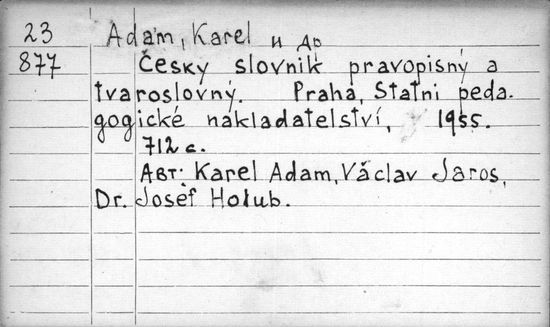 23 Adam, Karel и др
877 Česky slovnik pravopisný a
tvaroslovný. Praha, Statni peda-
gogické nakladatelství, 1955.
712 с.
Авт: Karel Adam, Václav Jaros,
Dr. Josef Holub.